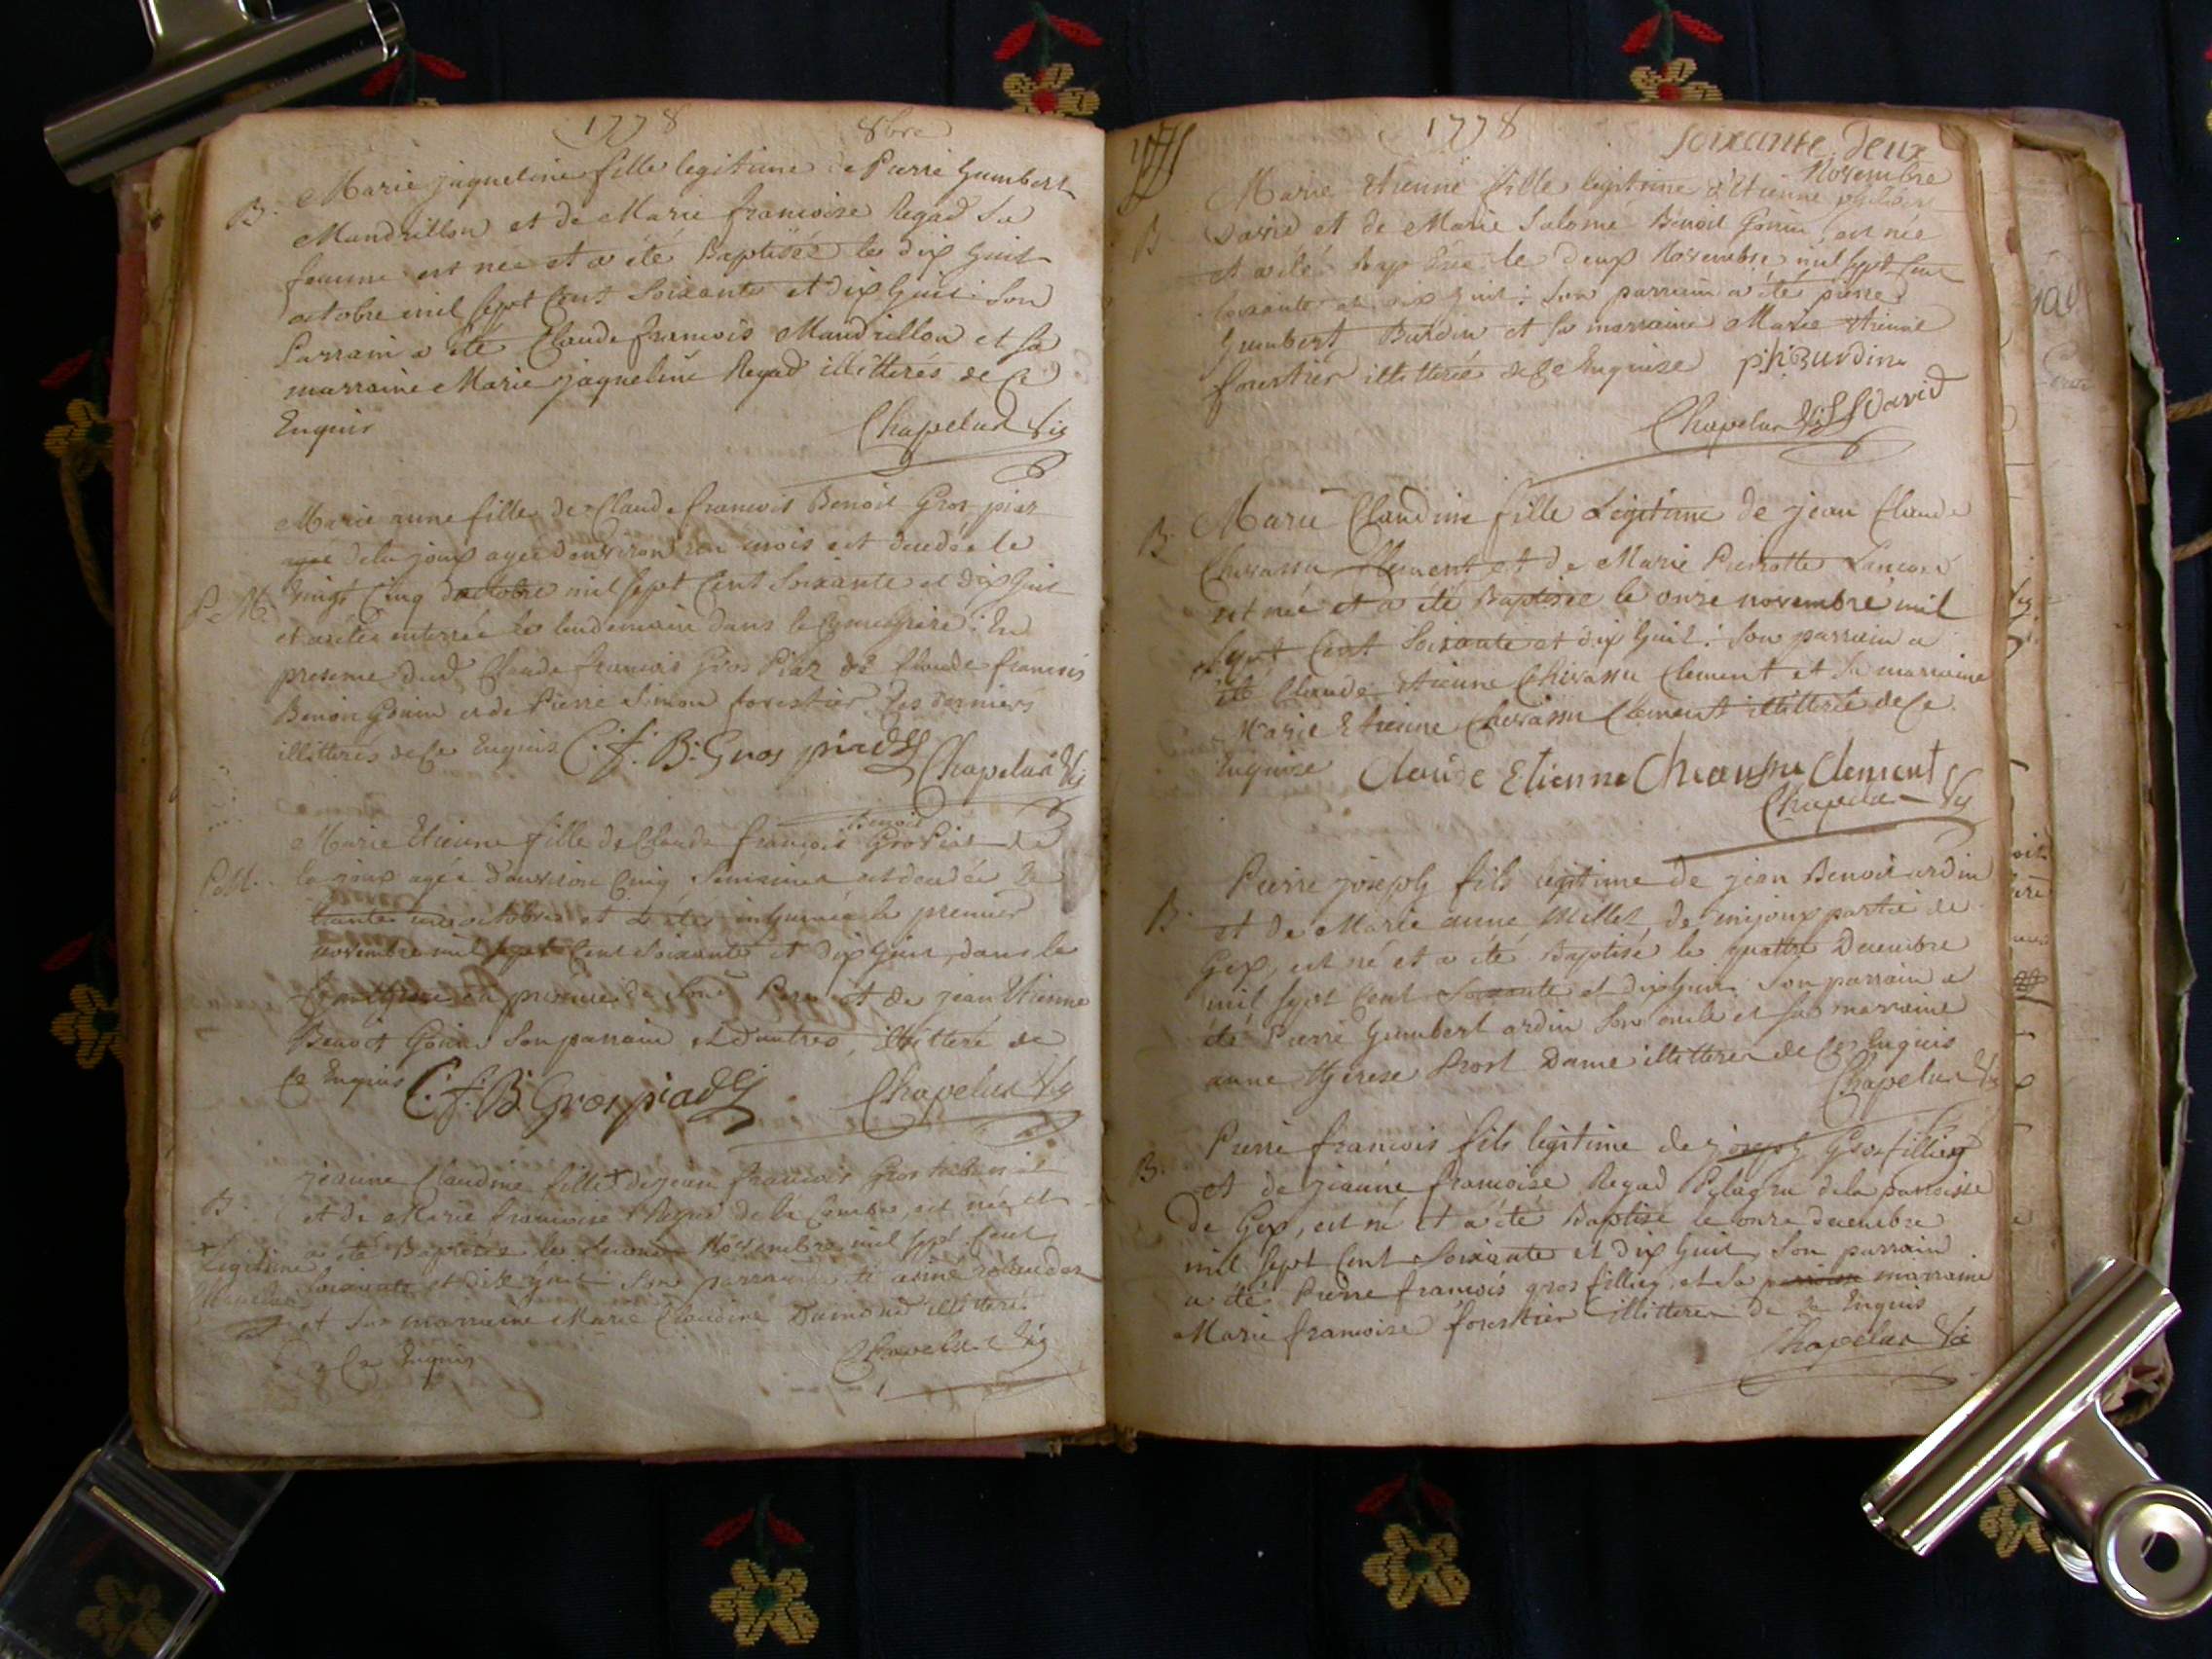 1778 8bre
B. Marie jaqueline fille legitime de Pierre humbert
Mandrillon et de Marie francoise Regad Sa
femme est née et a été Baptisée le dix huit
octobre mil sept Cent Soixante et dix huit: Son
Parrain a été Claude francois Mandrillon et sa
marraine Marie jaqueline Regad illitterés de Ce
Enquis
Chapelux Vic
Marie anne fille de Claude francois Benoit Gros piar
agée dela joux agée denviron un mois est decedée le
P. M. vingt Cinq doctobre mil sept Cent Soixante et dix huit
et a été enterrée le lendemain dans le Cymetiere: En
presence dud. Claude francois Gros Piar de Claude francois
Benoit Gonin et de Pierre Simon forestier les derniers
illitterés de Ce Enquis C. f. B. Gros piard
Chapelux Vic
Benoit
Marie Etienne fille de Claude francois GroPiar de
P. M. la joux agée d'environ Cinq Semaines est decedée le
trente un octobre et a été inhumée le premier
novembre mil sept Cent Soixante et dix huit, dans le
Cymetiere en presence de Son Pere et de jean Etienne
Benoit Gonin Son parrain et d'autres, illitteré de
Ce Enquis C. f. B. Grospiard Chapelux Vic
jeanne Claudine fille + de jean francois Gros
B. et de Marie francoise Regad de la Combe, est née et
+ Legitime a été Baptisée le Novembre mil sept Cent
Soixante et dix huit Son parrain
et Sa marraine Marie Claudine Dumond illitterés
de Ce Enquis Chapelux Vic
1778 soixante deux
Novembre
Marie Etienne fille legitime d'Etienne philibert
B. David et de Marie Salomé Benoit Gonin, est née
et a été Baptisée le deux Novembre mil sept Cent
Soixante et dix huit: Son parrain a été pierre
humbert Burdin et sa marraine Marie Etienne
forestier illitterée de Ce Enquise p h Burdin
Chapelux Vic David
B. Marie Claudine fille Legitime de jean Claude
Chevassu Clement et de Marie Pierrotte Lançon
est née et a été Baptisée le onze novembre mil
Sept Cent Soixante et dix huit: Son parrain a
été Claude Etienne Chevassu Clement et Sa marraine
Marie Etienne Chevassu Clement illitterée de Ce
Enquise Claude Etienne Chevassu Clement
Chapelux Vic
Pierre joseph fils legitime de jean Benoit ardin
B. et de Marie anne Millet, de mijoux partie de
Gex, est né et a été Baptisé le quatre Decembre
mil sept Cent Soixante et dix huit Son parrain a
été Pierre humbert ardin Son oncle et sa marraine
anne therese Prost Dame illitterés de Ce Enquis
Chapelux Vic
Pierre francois fils legitime de joseph Gros fillieg
B. et de jeanne francoise Regad Pelagru dela parroisse
De Gex, est né et a été Baptisé le onze decembre
mil Sept Cent Soixante et dix huit, Son parrain
a été Pierre francois gros fillieg, et Sa marraine
Marie francoise forestier illitterés de Ce Enquis
Chapelux Vic